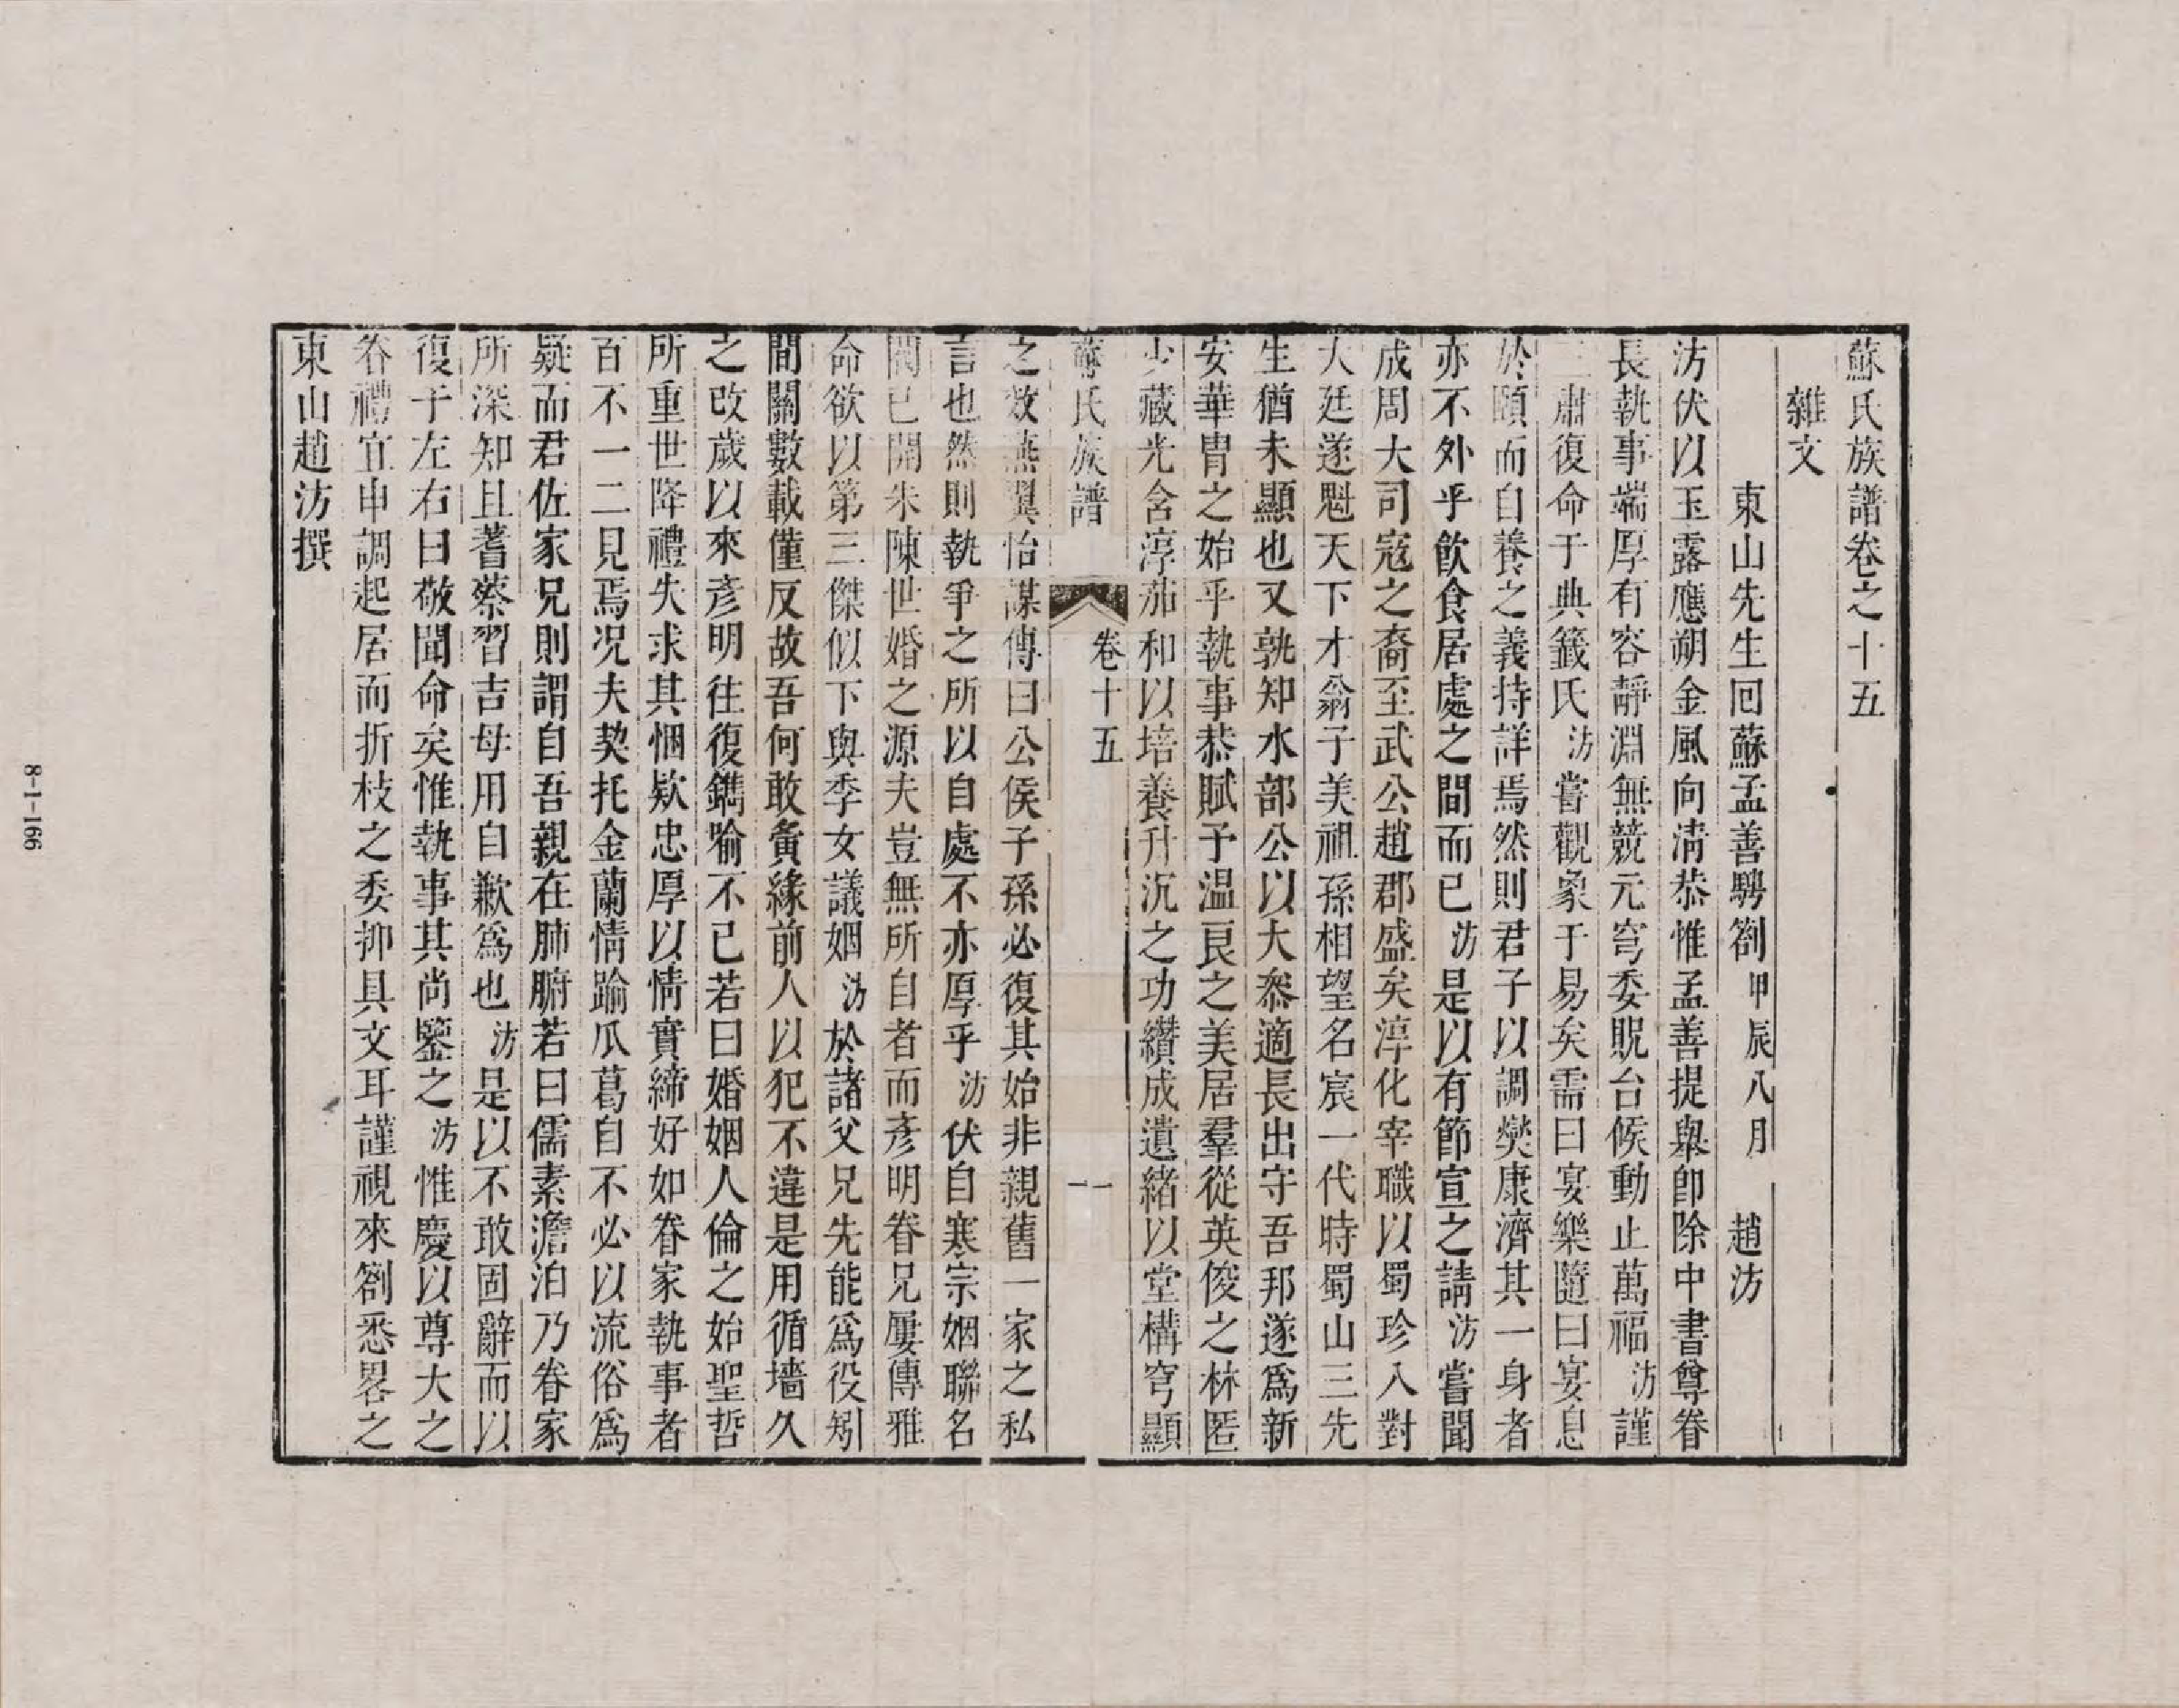 蘇氏族譜卷之十五
雜文
東山先生回蘇孟善聘劄甲辰八月　趙汸
汸伏以玉露應朔金風向淸恭惟孟善提舉卽除中書尊眷
長執事端厚有容靜淵無競元穹委貺台候動止萬福汸謹
三肅復命于典籤氏汸嘗觀象于易矣需曰宴樂隨曰宴息
於頤而自養之義持詳焉然則君子以調爕康濟其一身者
亦不外乎飮食居處之間而已汸是以有節宣之請汸嘗聞
成周大司寇之裔至武公趙郡盛矣淳化宰職以蜀珍入對
大廷遂魁天下才翁子美祖孫相望名宸一代時蜀山三先
生猶未顯也又孰知水部公以大叅適長出守吾邦遂爲新
安華胄之始乎執事恭賦予温良之美居羣從英俊之林匿
少藏光含淳茹和以培養升沉之功纘成遺緒以堂構穹顯
蘇氏族譜　卷十五　一
之敎燕翼怡謀傳曰公侯子孫必復其始非親舊一家之私
言也然則執爭之所以自處不亦厚乎汸伏自寒宗姻聯名
閥已開朱陳世婚之源夫豈無所自者而彥明眷兄屢傳雅
命欲以第三傑似下與季女議姻汸於諸父兄先能爲役矧
間關數載僅反故吾何敢夤緣前人以犯不違是用循墻久
之改歲以來彥明往復鐫喻不已若曰婚姻人倫之始聖哲
所重世降禮失求其悃欵忠厚以情實締好如眷家執事者
百不一二見焉况夫契托金蘭情踰瓜葛自不必以流俗爲
疑而君佐家兄則謂自吾親在肺腑若曰儒素澹泊乃眷家
所深知且蓍蔡習吉母用自歉爲也汸是以不敢固辭而以
復于左右曰敬聞命矣惟執事其尚鑒之汸惟慶以尊大之
眷禮宜申調起居而折枝之委抑具文耳謹視來劄悉畧之
東山趙汸撰
8-1-166